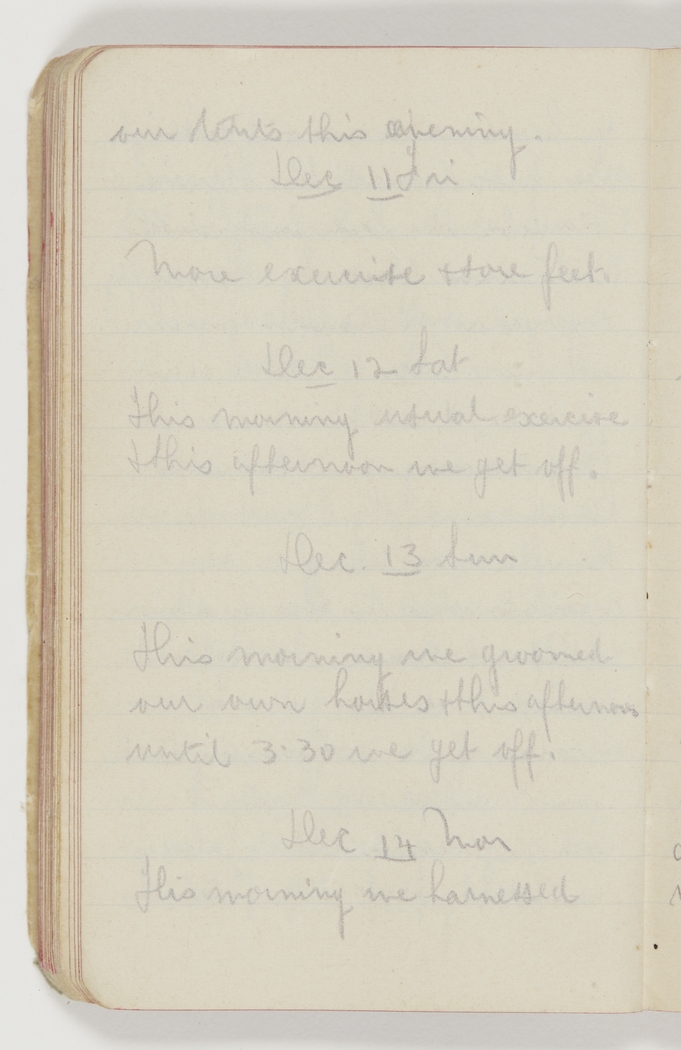 our tents this evening.
Dec 11 Fri
More exercise & sore feet.
Dec 12 Sat
This morning usual exercise
& this afternoon we get off.
Dec. 13 Sun
This morning we groomed
our own horses & this afternoon
until 3.30 we get off.
Dec 14 Mon
This morning we harnessed